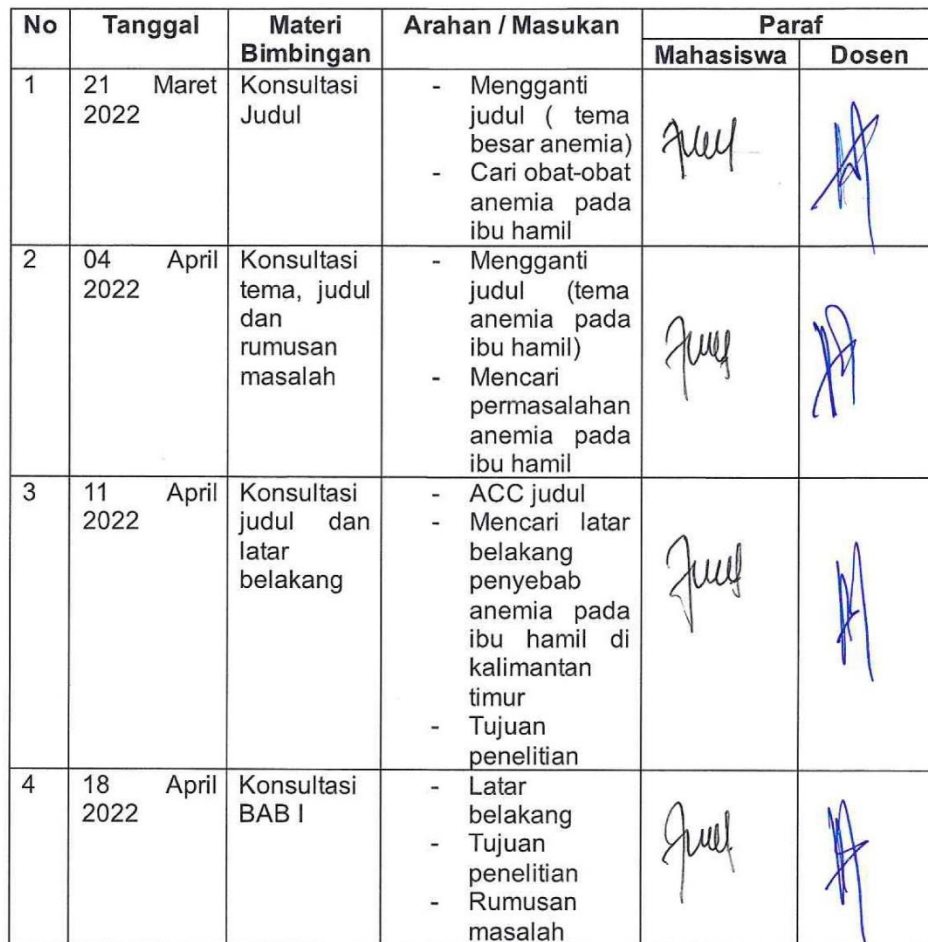 No Tanggal Materi Bimbingan Arahan / Masukan Paraf
Mahasiswa Dosen
1 21 Maret 2022 Konsultasi Judul
- Mengganti
judul ( tema
besar anemia)
- Cari obat-obat
anemia pada
ibu hamil
2 04 April 2022 Konsultasi tema, judul dan rumusan masalah
- Mengganti
judul (tema
anemia pada
ibu hamil)
- Mencari
permasalahan
anemia pada
ibu hamil
3 11 April 2022 Konsultasi judul dan latar belakang
- ACC judul
- Mencari latar
belakang
penyebab
anemia pada
ibu hamil di
kalimantan
timur
- Tujuan
penelitian
4 18 April 2022 Konsultasi BAB I
- Latar
belakang
- Tujuan
penelitian
- Rumusan
masalah